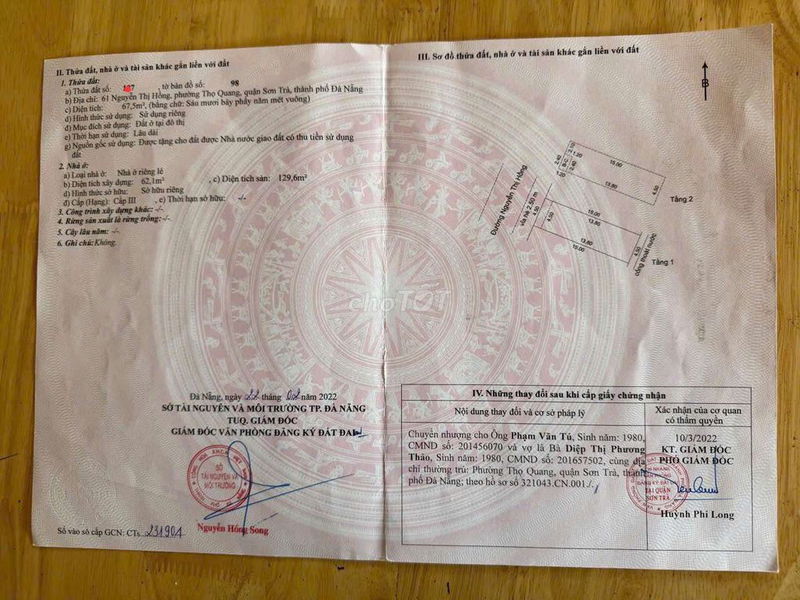 II. Thửa đất, nhà ở và tài sản khác gắn liền với đất
1. Thửa đất:
a) Thửa đất số: 187 , tờ bản đồ số: 98
b) Địa chỉ: 61 Nguyễn Thị Hồng, phường Thọ Quang, quận Sơn Trà, thành phố Đà Nẵng
c) Diện tích: 67,5m², (bằng chữ: Sáu mươi bảy phẩy năm mét vuông)
d) Hình thức sử dụng: Sử dụng riêng
đ) Mục đích sử dụng: Đất ở tại đô thị
e) Thời hạn sử dụng: Lâu dài
g) Nguồn gốc sử dụng: Được tặng cho đất được Nhà nước giao đất có thu tiền sử dụng
đất
2. Nhà ở:
a) Loại nhà ở: Nhà ở riêng lẻ
b) Diện tích xây dựng: 62,1m² , c) Diện tích sàn: 129,6m²
d) Hình thức sở hữu: Sở hữu riêng
đ) Cấp (Hạng): Cấp III , e) Thời hạn sở hữu: -/-
3. Công trình xây dựng khác: -/-
4. Rừng sản xuất là rừng trồng: -/-
5. Cây lâu năm: -/-
6. Ghi chú: Không.
Đà Nẵng, ngày 22 tháng 02 năm 2022
SỞ TÀI NGUYÊN VÀ MÔI TRƯỜNG TP. ĐÀ NẴNG
TUQ. GIÁM ĐỐC
GIÁM ĐỐC VĂN PHÒNG ĐĂNG KÝ ĐẤT ĐAI
SỞ
TÀI NGUYÊN VÀ
MÔI TRƯỜNG
Nguyễn Hồng Song
Số vào sổ cấp GCN: CTs 231904
III. Sơ đồ thửa đất, nhà ở và tài sản khác gắn liền với đất
B
Đường Nguyễn Thị Hồng
vỉa hè 2,50 m
1.20
2.40
2.40
2.10
B-C
15.00
13.80
4.50
Tầng 2
4.50
4.50
15.00
13.80
13.80
15.00
4.50
cống thoát nước
Tầng 1
chợ TỐT
IV. Những thay đổi sau khi cấp giấy chứng nhận
Nội dung thay đổi và cơ sở pháp lý
Xác nhận của cơ quan
có thẩm quyền
Chuyển nhượng cho Ông Phạm Văn Tú, Sinh năm: 1980,
CMND số: 201456070 và vợ là Bà Diệp Thị Phương
Thảo, Sinh năm: 1980, CMND số: 201657502, cùng địa
chỉ thường trú: Phường Thọ Quang, quận Sơn Trà, thành
phố Đà Nẵng; theo hồ sơ số 321043.CN.001./.
10/3/2022
KT. GIÁM ĐỐC
PHÓ GIÁM ĐỐC
ĐĂNG KÝ ĐẤT ĐAI
TẠI QUẬN
SƠN TRÀ
Huỳnh Phi Long